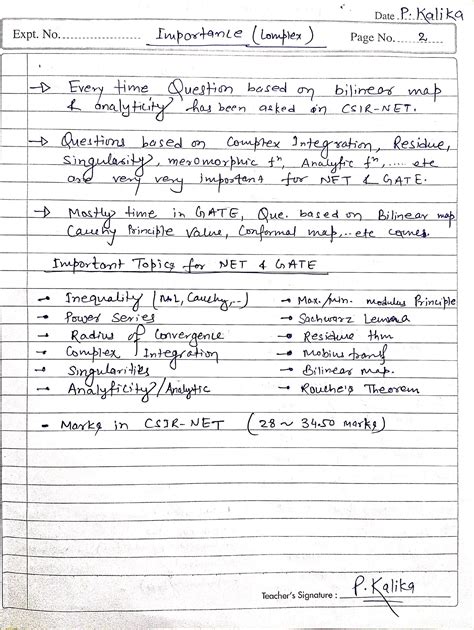 Date P. Kalika
Expt. No. Importance (Complex) Page No. 2
→ Every time Question based on bilinear map
& analyticity has been asked in CSIR-NET.
→ Questions based on Complex Integration, Residue,
Singularity, meromorphic fⁿ, Analytic fⁿ, .... etc
are very very important for NET & GATE.
→ Mostly time in GATE, Que. based on Bilinear map
Cauchy Principle Value, Conformal map,.. etc comes.
Important Topics for NET & GATE
→ Inequality (M.L, Cauchy,..) → Max./min. modulus Principle
→ Power Series → Sachwarz Lemma
→ Radius of Convergence → Residue thm
→ Complex Integration → Mobius transf
→ Singularities → Bilinear map.
→ Analyticity/Analytic → Rouche's Theorem
- Marks in CSIR-NET (28 ~ 34.50 marks)
Teacher's Signature : P. Kalika